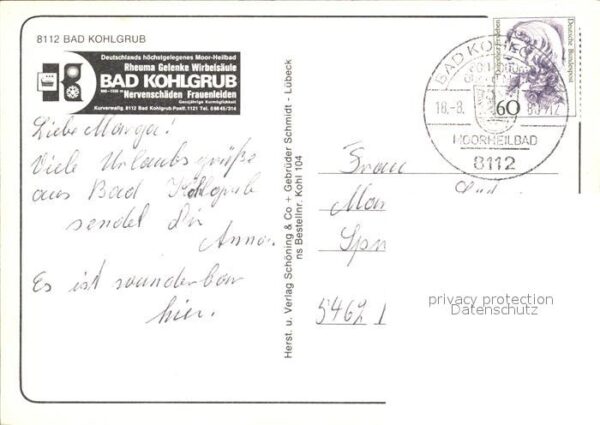 8112 BAD KOHLGRUB
Deutschlands höchstgelegenes Moor-Heilbad
Rheuma Gelenke Wirbelsäule
BAD KOHLGRUB
Nervenschäden Frauenleiden
Ganzjährige Kurmöglichkeit
Kurverwaltg. 8112 Bad Kohlgrub Postf. 1121 Tel. 08845/314
Liebe Marga!
Viele Urlaubsgrüße
aus Bad Kohlgrub
sendet Dir
Anna.
Es ist wunderbar
hier.
Herst. u. Verlag Schöning & Co + Gebrüder Schmidt - Lübeck
ns Bestellnr. Kohl 104
BAD KOHLG
18.-8.
MOORHEILBAD
8112
60
Deutsche Bundespost
Frau
Mar
Spr
5462
privacy protection
Datenschutz